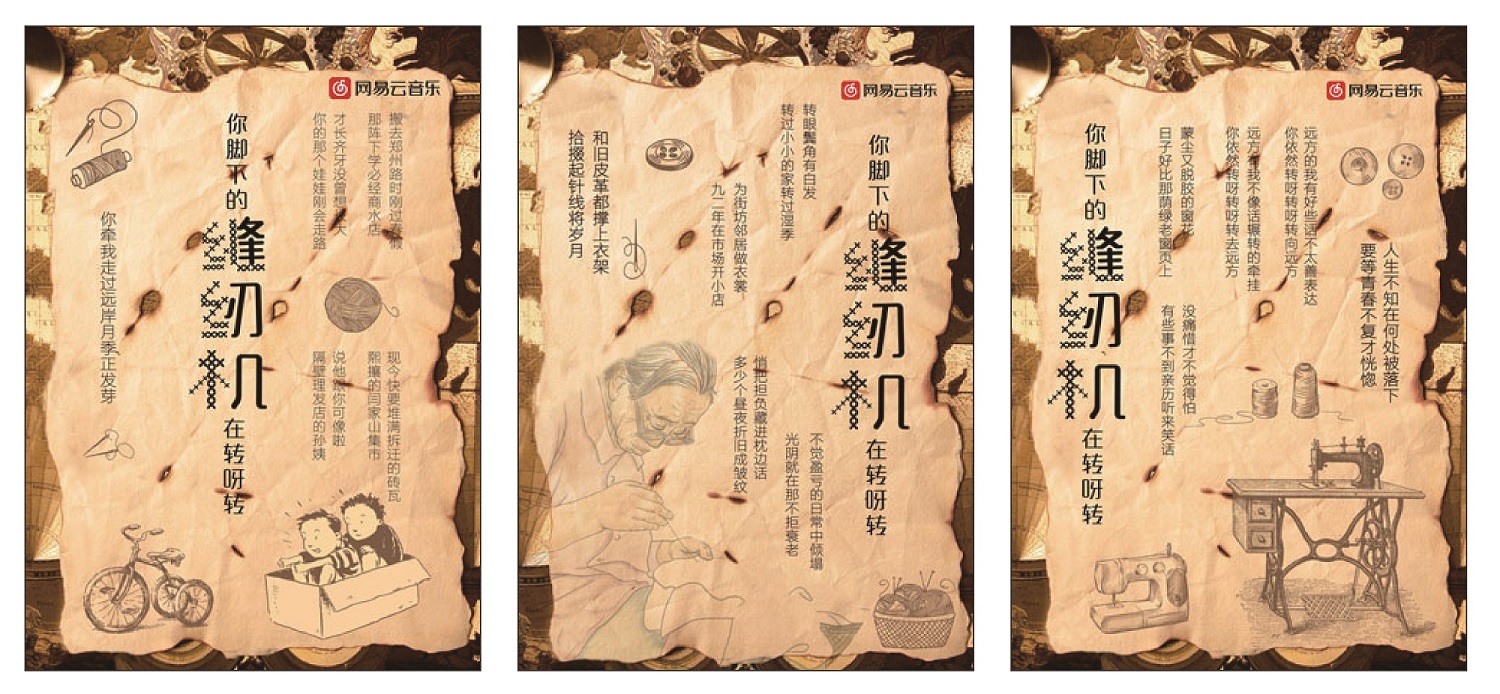 网易云音乐
搬去郑州路时刚过春假
那阵下学必经商水店
才长齐牙没曾想长大
你的那个娃娃刚会走路
现今快要堆满拆迁的砖瓦
熙攘的闫家山集市
说他跟你可像啦
隔壁理发店的孙姨
你脚下的
缝纫机
在转呀转
你牵我走过远岸月季正发芽
网易云音乐
你脚下的
缝纫机
在转呀转
转眼鬓角有白发
转过小小的家转过湿季
为街坊邻居做衣裳
九二年在市场开小店
和旧皮革都撑上衣架
拾掇起针线将岁月
不觉盈亏的日常中倾塌
光阴就在那不拒衰老
悄把担负藏进枕边话
多少个昼夜折旧成皱纹
网易云音乐
人生不知在何处被落下
要等青春不复才恍惚
远方的我有好些话不太善表达
你依然转呀转呀转向远方
远方有我不像话辗转的牵挂
你依然转呀转呀转去远方
蒙尘又脱胶的窗花
日子好比那荫绿老窗页上
没痛惜才不觉得怕
有些事不到亲历听来笑话
你脚下的
缝纫机
在转呀转